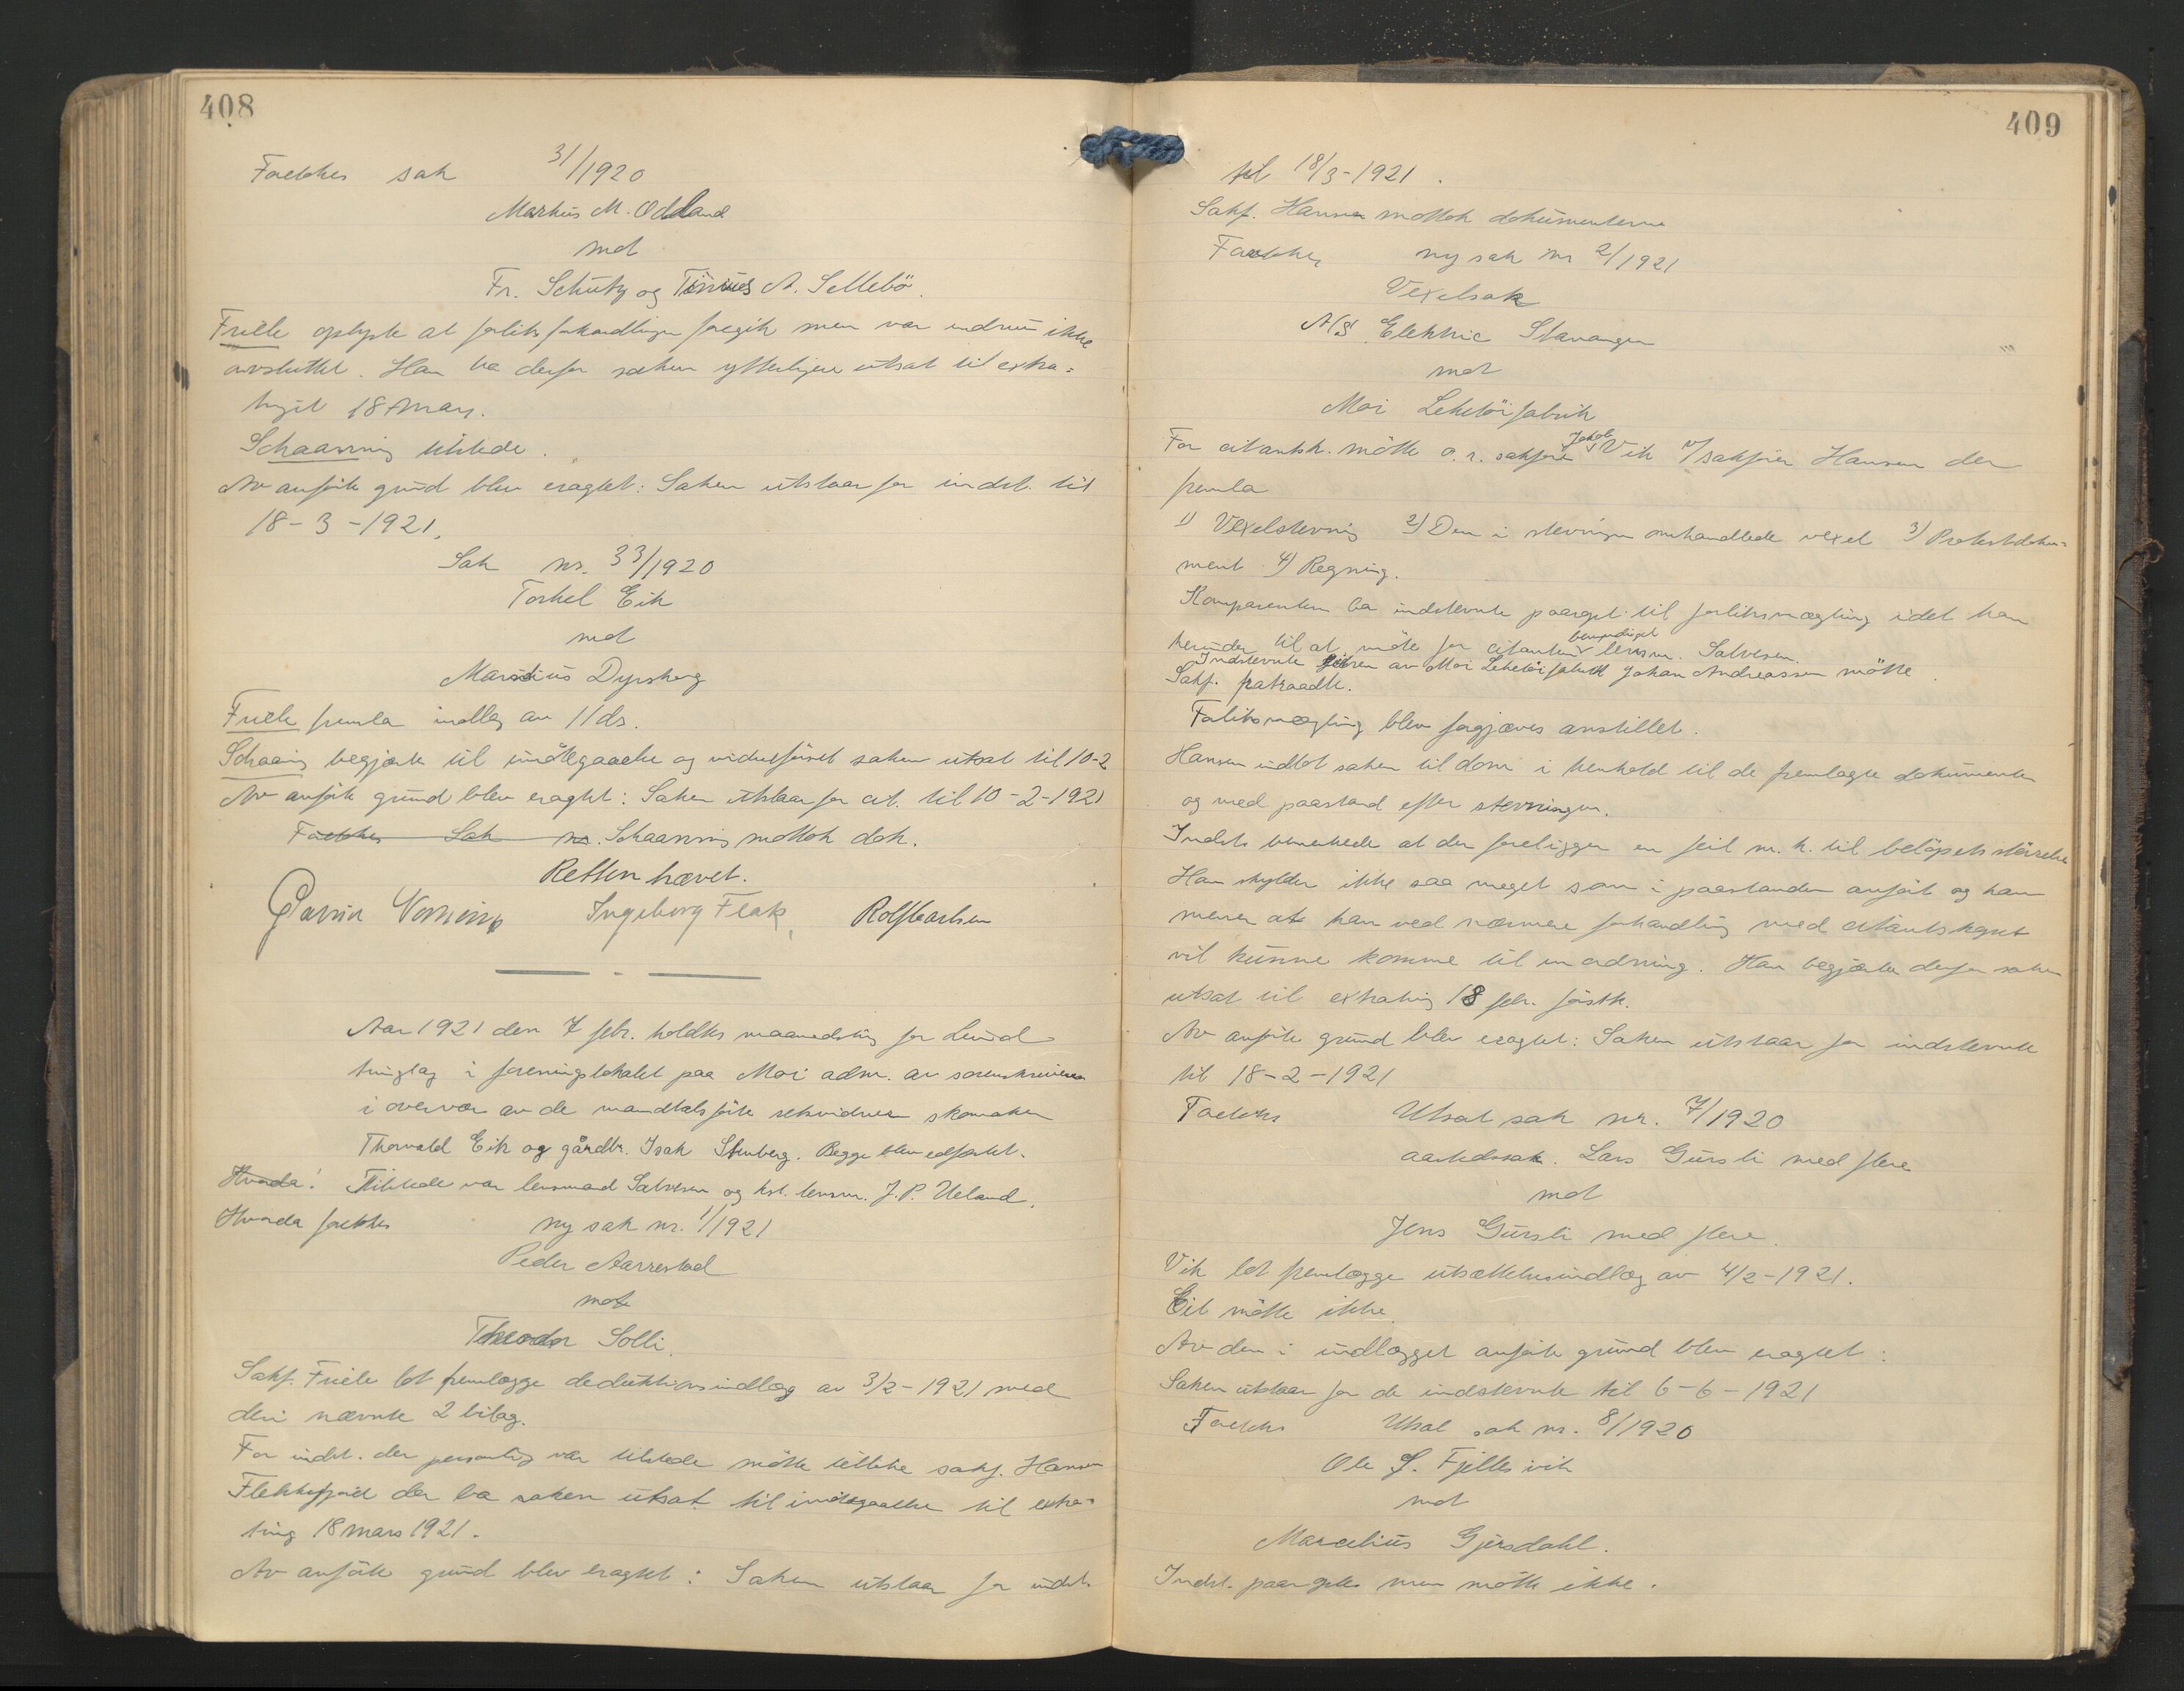 408
Foretokes sak 31/1920
Markus M. Oddland
mot
Fr. Schutz og Tönnes A. Sellebö.
Friele oplyste at forliksforhandlinger foregik men var endnu ikke
avsluttet. Han ba derfor saken ytterligere utsat til extra-
tinget 18 mars.
Schaanning tilstede.
Av anförte grund blev eragtet: Saken utstaar for indst. til
18-3-1921.
Sak nr. 33/1920
Torkel Eik
mot
Marselius Dyrskog
Friele fremla indlæg av 11 ds.
Schaaning begjærte til imötegaaelse og vidnesförsel saken utsat til 10-2
Av anförte grund blev eragtet: Saken utstaar for cit. til 10-2-1921
Foretokes Sak nr. Schaanning mottok dok.
Retten hævet.
Ingeborg Flak, Rolf Carlsen
Aar 1921 den 7 febr. holdtes maanedsting for Lund
tinglag i foreningslokalet paa Moi adm. av sorenskriveren
i overvær av de mandtalsförte retsvidner skomaker
Thorvald Eik og gårdbr. Isak Stenberg. Begge blev edfæstet.
Hvorda! Tilstede var lensmand Salvesen og kst. lensm. J. P. Ueland.
Hvorda foretokes ny sak nr. 1/1921
Peder Aarrestad
mot
Theodor Solli.
Sakf. Friele lot fremlægge deduktionsindlæg av 3/2-1921 med
deri nævnte 2 bilag.
For indst. der personlig var tilstede mötte sakf. Hansen
Flekkefjord der ba saken utsat til imötegaaelse til extra-
ting 18 mars 1921.
Av anförte grund blev eragtet: Saken utstaar for indst.
409
til 18/3-1921.
Sakf. Hansen mottok dokumenterne
Foretokes ny sak nr 2/1921
Vexelsak
A/S. Elektric Stavanger
mot
Moi Leketöifabrik
For citantsk. mötte o. r. sakförer Jakob Vik v/ sakförer Hansen der
fremla
1) Vexelstevning 2) Den i stevningen omhandlede vexel 3) Protestdoku-
ment 4) Regning.
Komparenten ba indstevnte paaropt til forliksmægling idet han
herunder til at möte for citanten bemyndiget lensm. Salvesen.
Indstevnte eieren av Moi Leketöifabrik Johan Andreassen mötte.
Sakf. fratraadte.
Forliksmægling blev forgjæves anstillet.
Hansen indlot saken til dom i henhold til de fremlagte dokumenter
og med paastand efter stevningen.
Indst. bemerkede at der foreligger en feil m. h. til belöpets störrelse
Han skylder ikke saa meget som i paastanden anfört og han
mener at han ved nærmere forhandling med citantskapet
vil kunne komme til en ordning. Han begjærte derfor saken
utsat til extrating 18 febr. förstk.
Av anförte grund blev eragtet: Saken utstaar for indstevnte
til 18-2-1921
Foretokes Utsat sak nr. 7/1920
aastedssak. Lars Gursli med flere
mot
Jens Gursli med flere.
Vik lot fremlægge utsættelsesindlæg av 4/2-1921.
Cit mötte ikke.
Av den i indlægget anförte grund blev eragtet:
Saken utstaar for de indstevnte til 6-6-1921
Foretokes Utsat sak nr. 8/1920
Ole S. Fjellesvik
mot
Marcelius Gjersdahl.
Indst. paaroptes men mötte ikke.